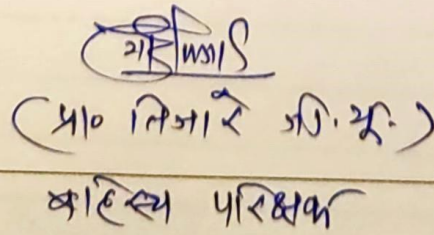 (प्रा० तिजारे जी.यू.)
बाहिस्थ परिक्षक